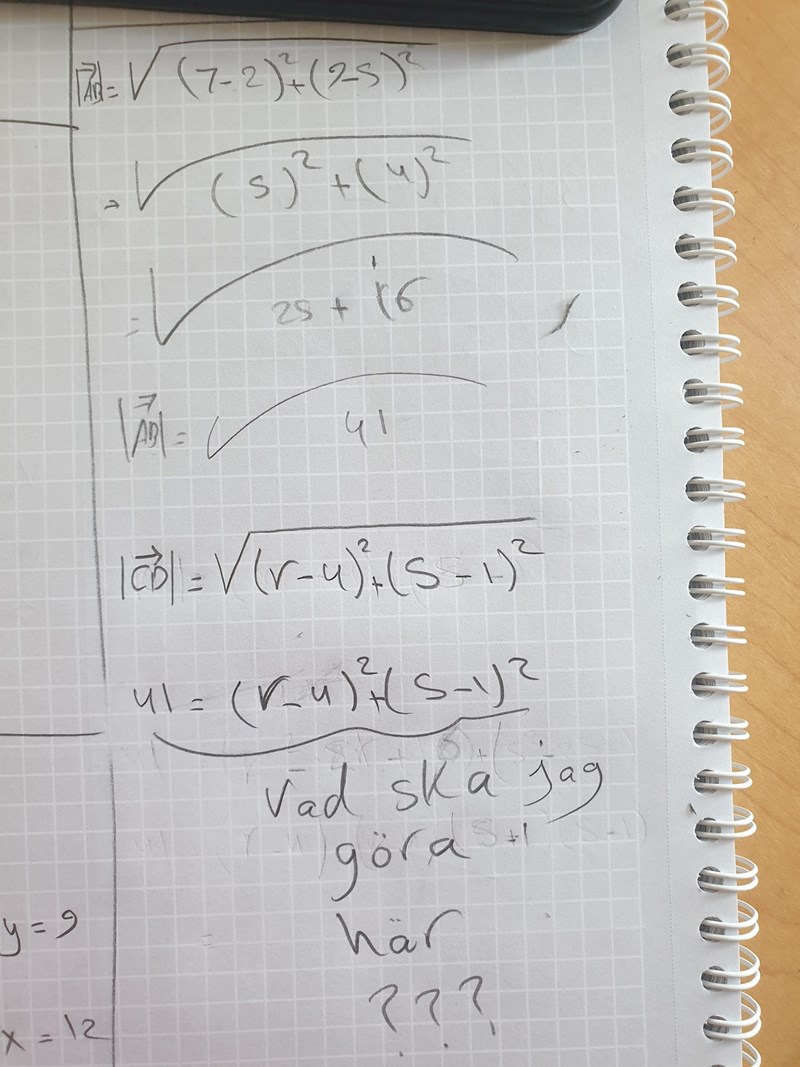 |AB| = √(7-2)²+(9-5)²
= √(5)²+(4)²
= √25 + 16
|AB| = √41
|CD| = √(r-4)²+(s-1)²
41 = (r-4)²+(s-1)²
Vad ska jag
göra
här
???
y = 9
x = 12